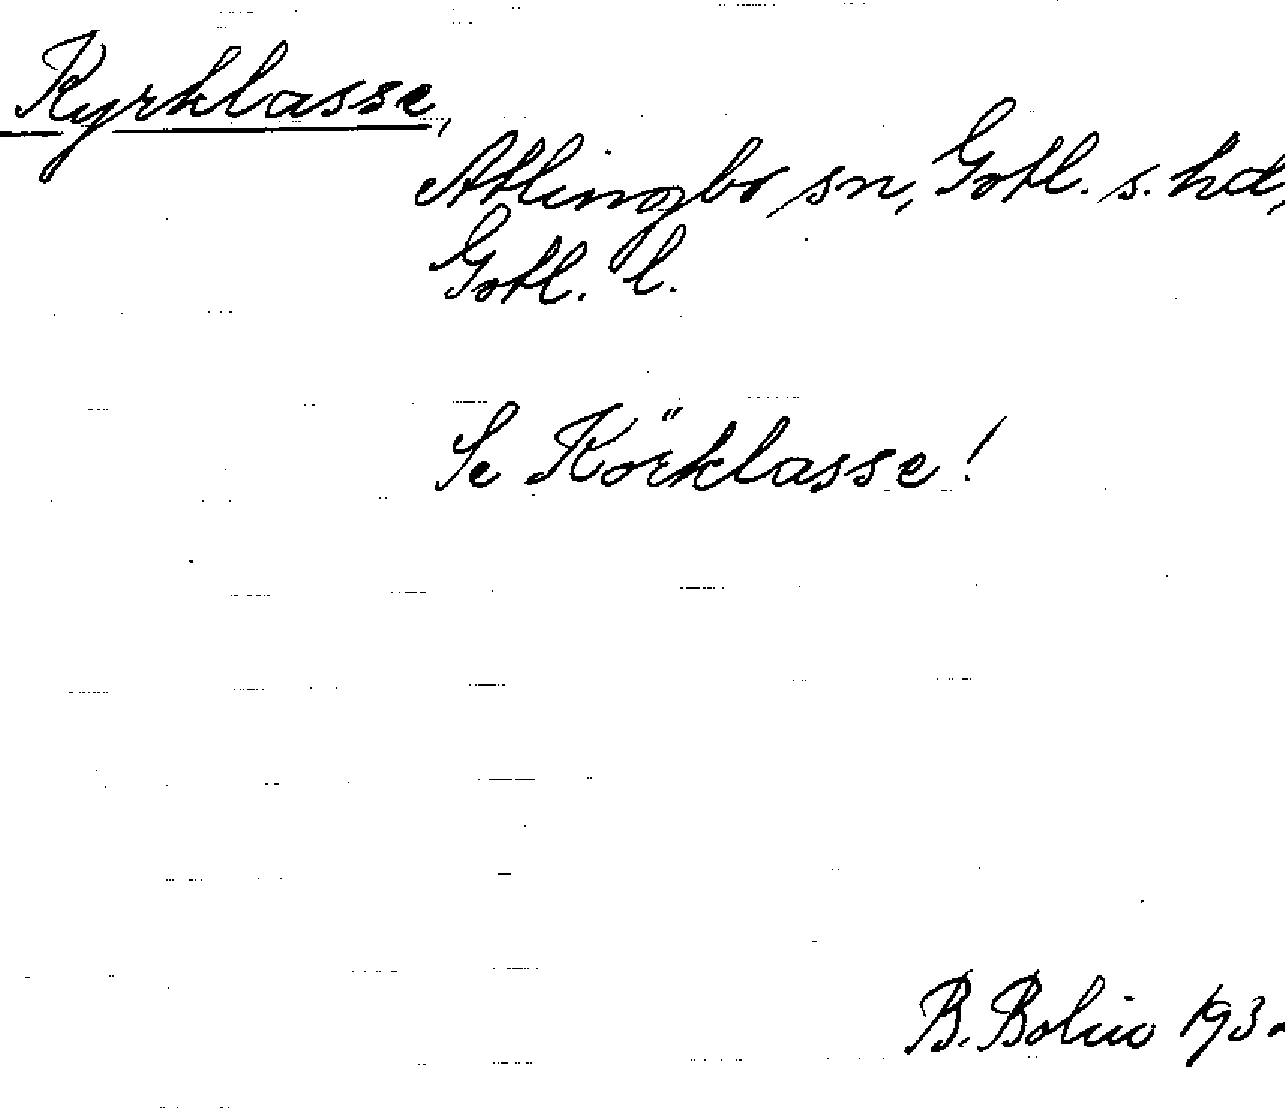 Kyrklasse,
Atlingbo sn, Gotl. s. hd,
Gotl. l.
Se Körklasse!
B. Bolin 193